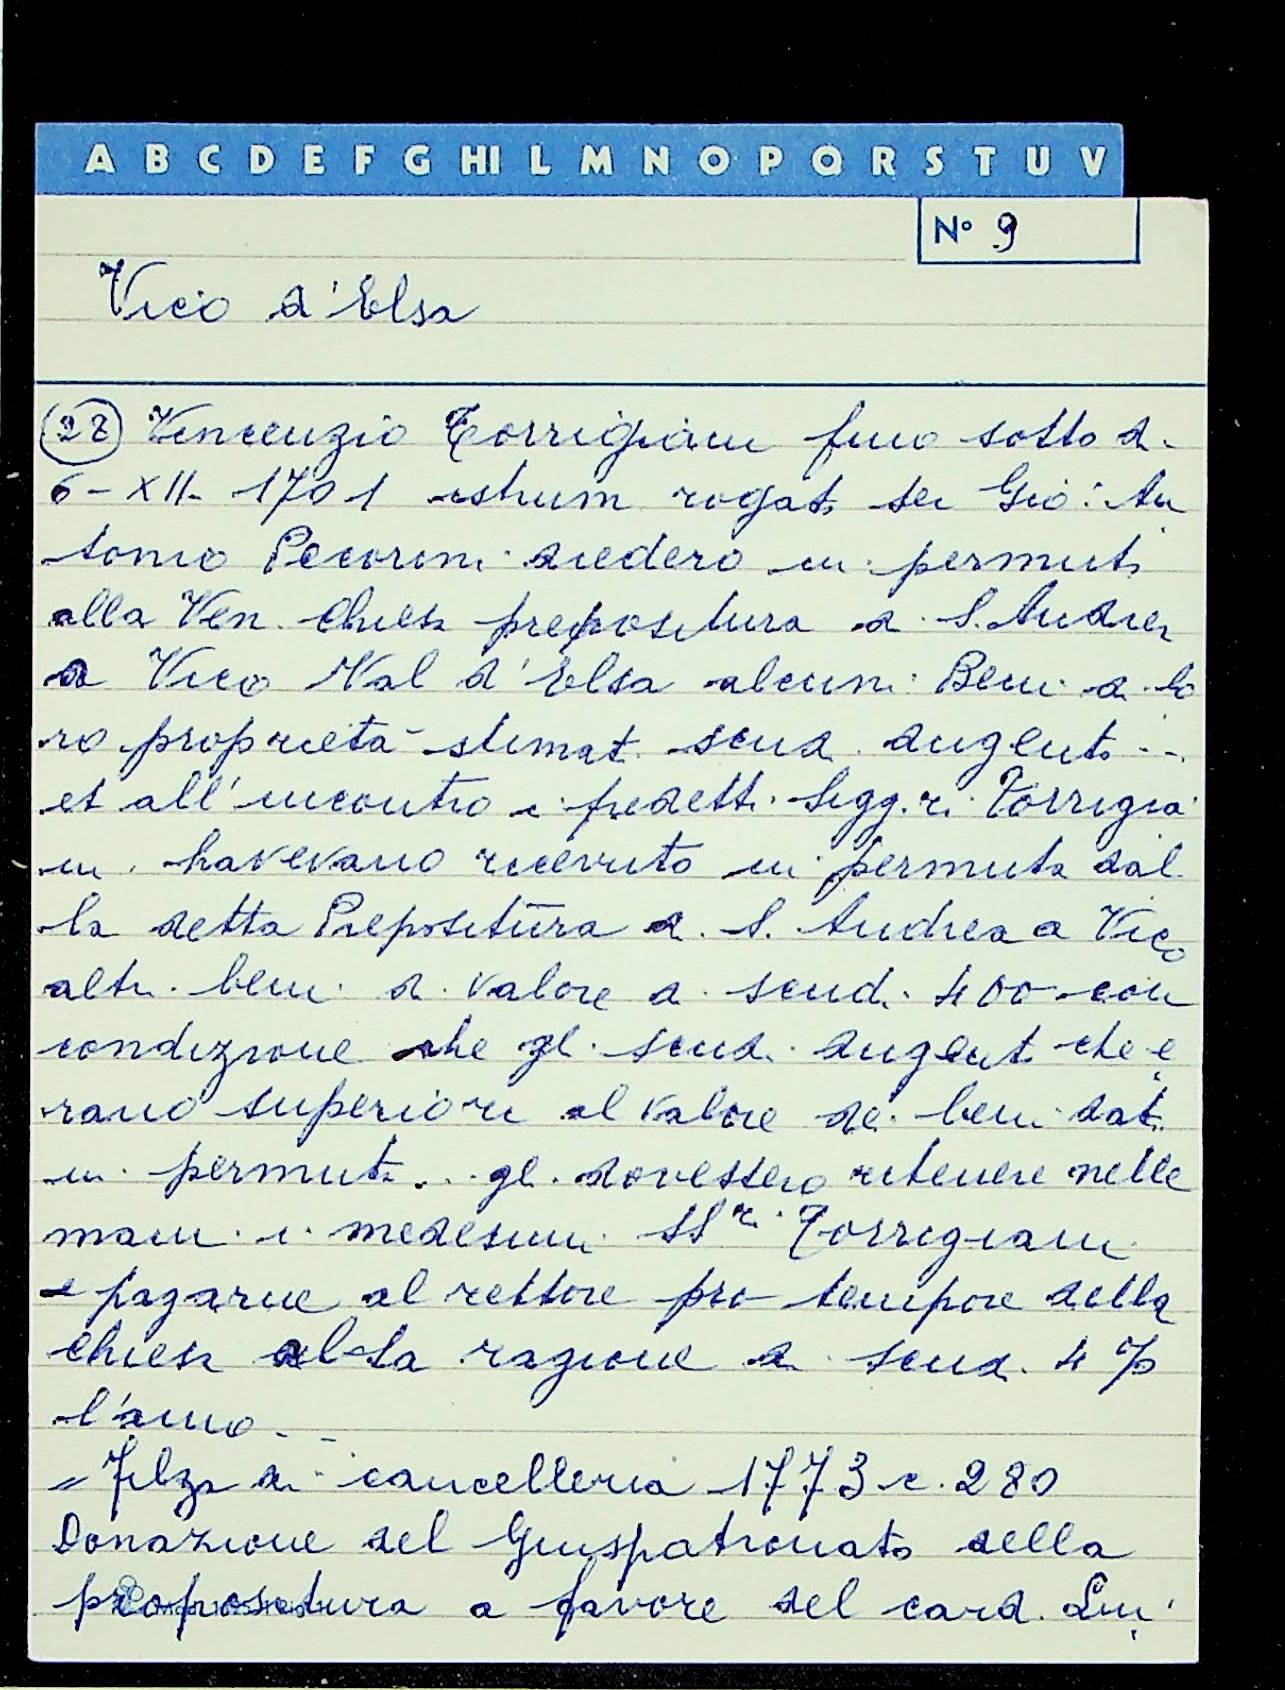 A B C D E F G HI L M N O P Q R S T U V
N° 9
Vico d'Elsa
Vincenzio Torrigiani fino sotto di
6-XII-1701 istrum. rogato ser Gio: An
tonio Pecorini diedero in permuta
alla Ven. Chiesa prepositura di S. Andrea
a Vico Val d'Elsa alcuni Beni di lo
ro proprietà stimati scudi dugento ...
et all'incontro i predetti Sigg.ri Torrigia
ni havevano ricevuto in permuta dal
la detta Prepositura di S. Andrea a Vico
altri beni di valore di scudi 400 con
condizione che gli scudi dugento che e
rano superiori al valore dei beni dati
in permuta ... gli dovessero ritenere nelle
mani i medesimi SS.ri Torrigiani
e pagarne al rettore pro tempore della
chiesa alla ragione di scudi 4 %
l'anno ...
= Filza di cancelleria 1773 c. 280
Donazione del Giuspatronato della
propositura a favore del card. Lui